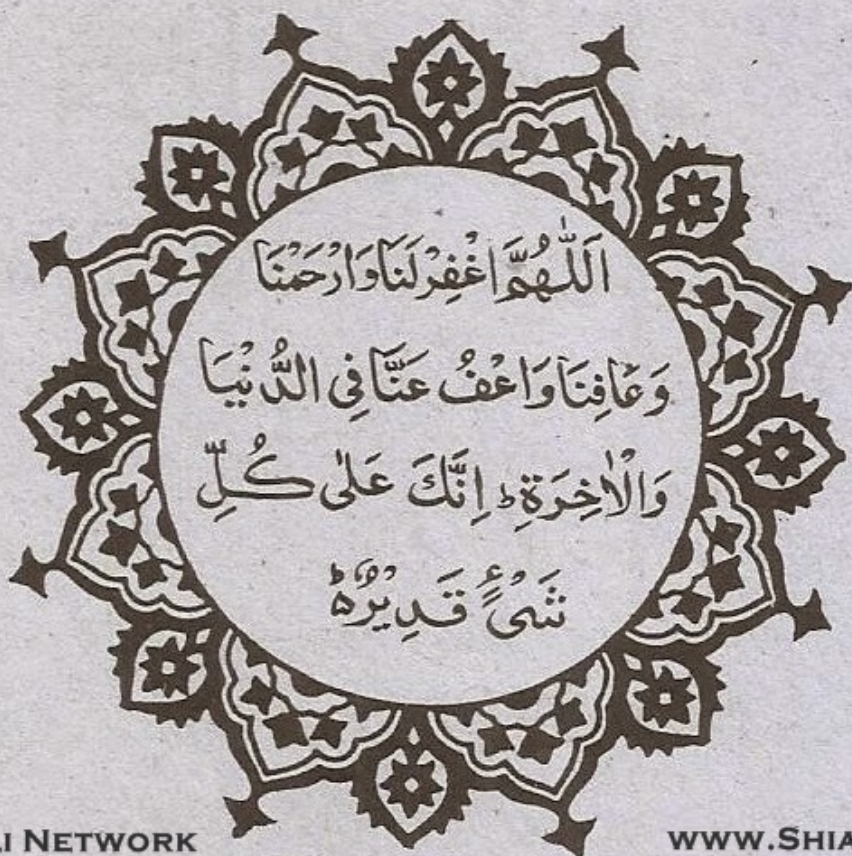 اَللّٰهُمَّ اغْفِرْ لَنَا وَارْحَمْنَا
وَعَافِنَا وَاعْفُ عَنَّا فِي الدُّنْيَا
وَالْاٰخِرَةِ ط اِنَّكَ عَلٰى كُلِّ
شَیْءٍ قَدِیْرٌ ط
NETWORK WWW.SHIA